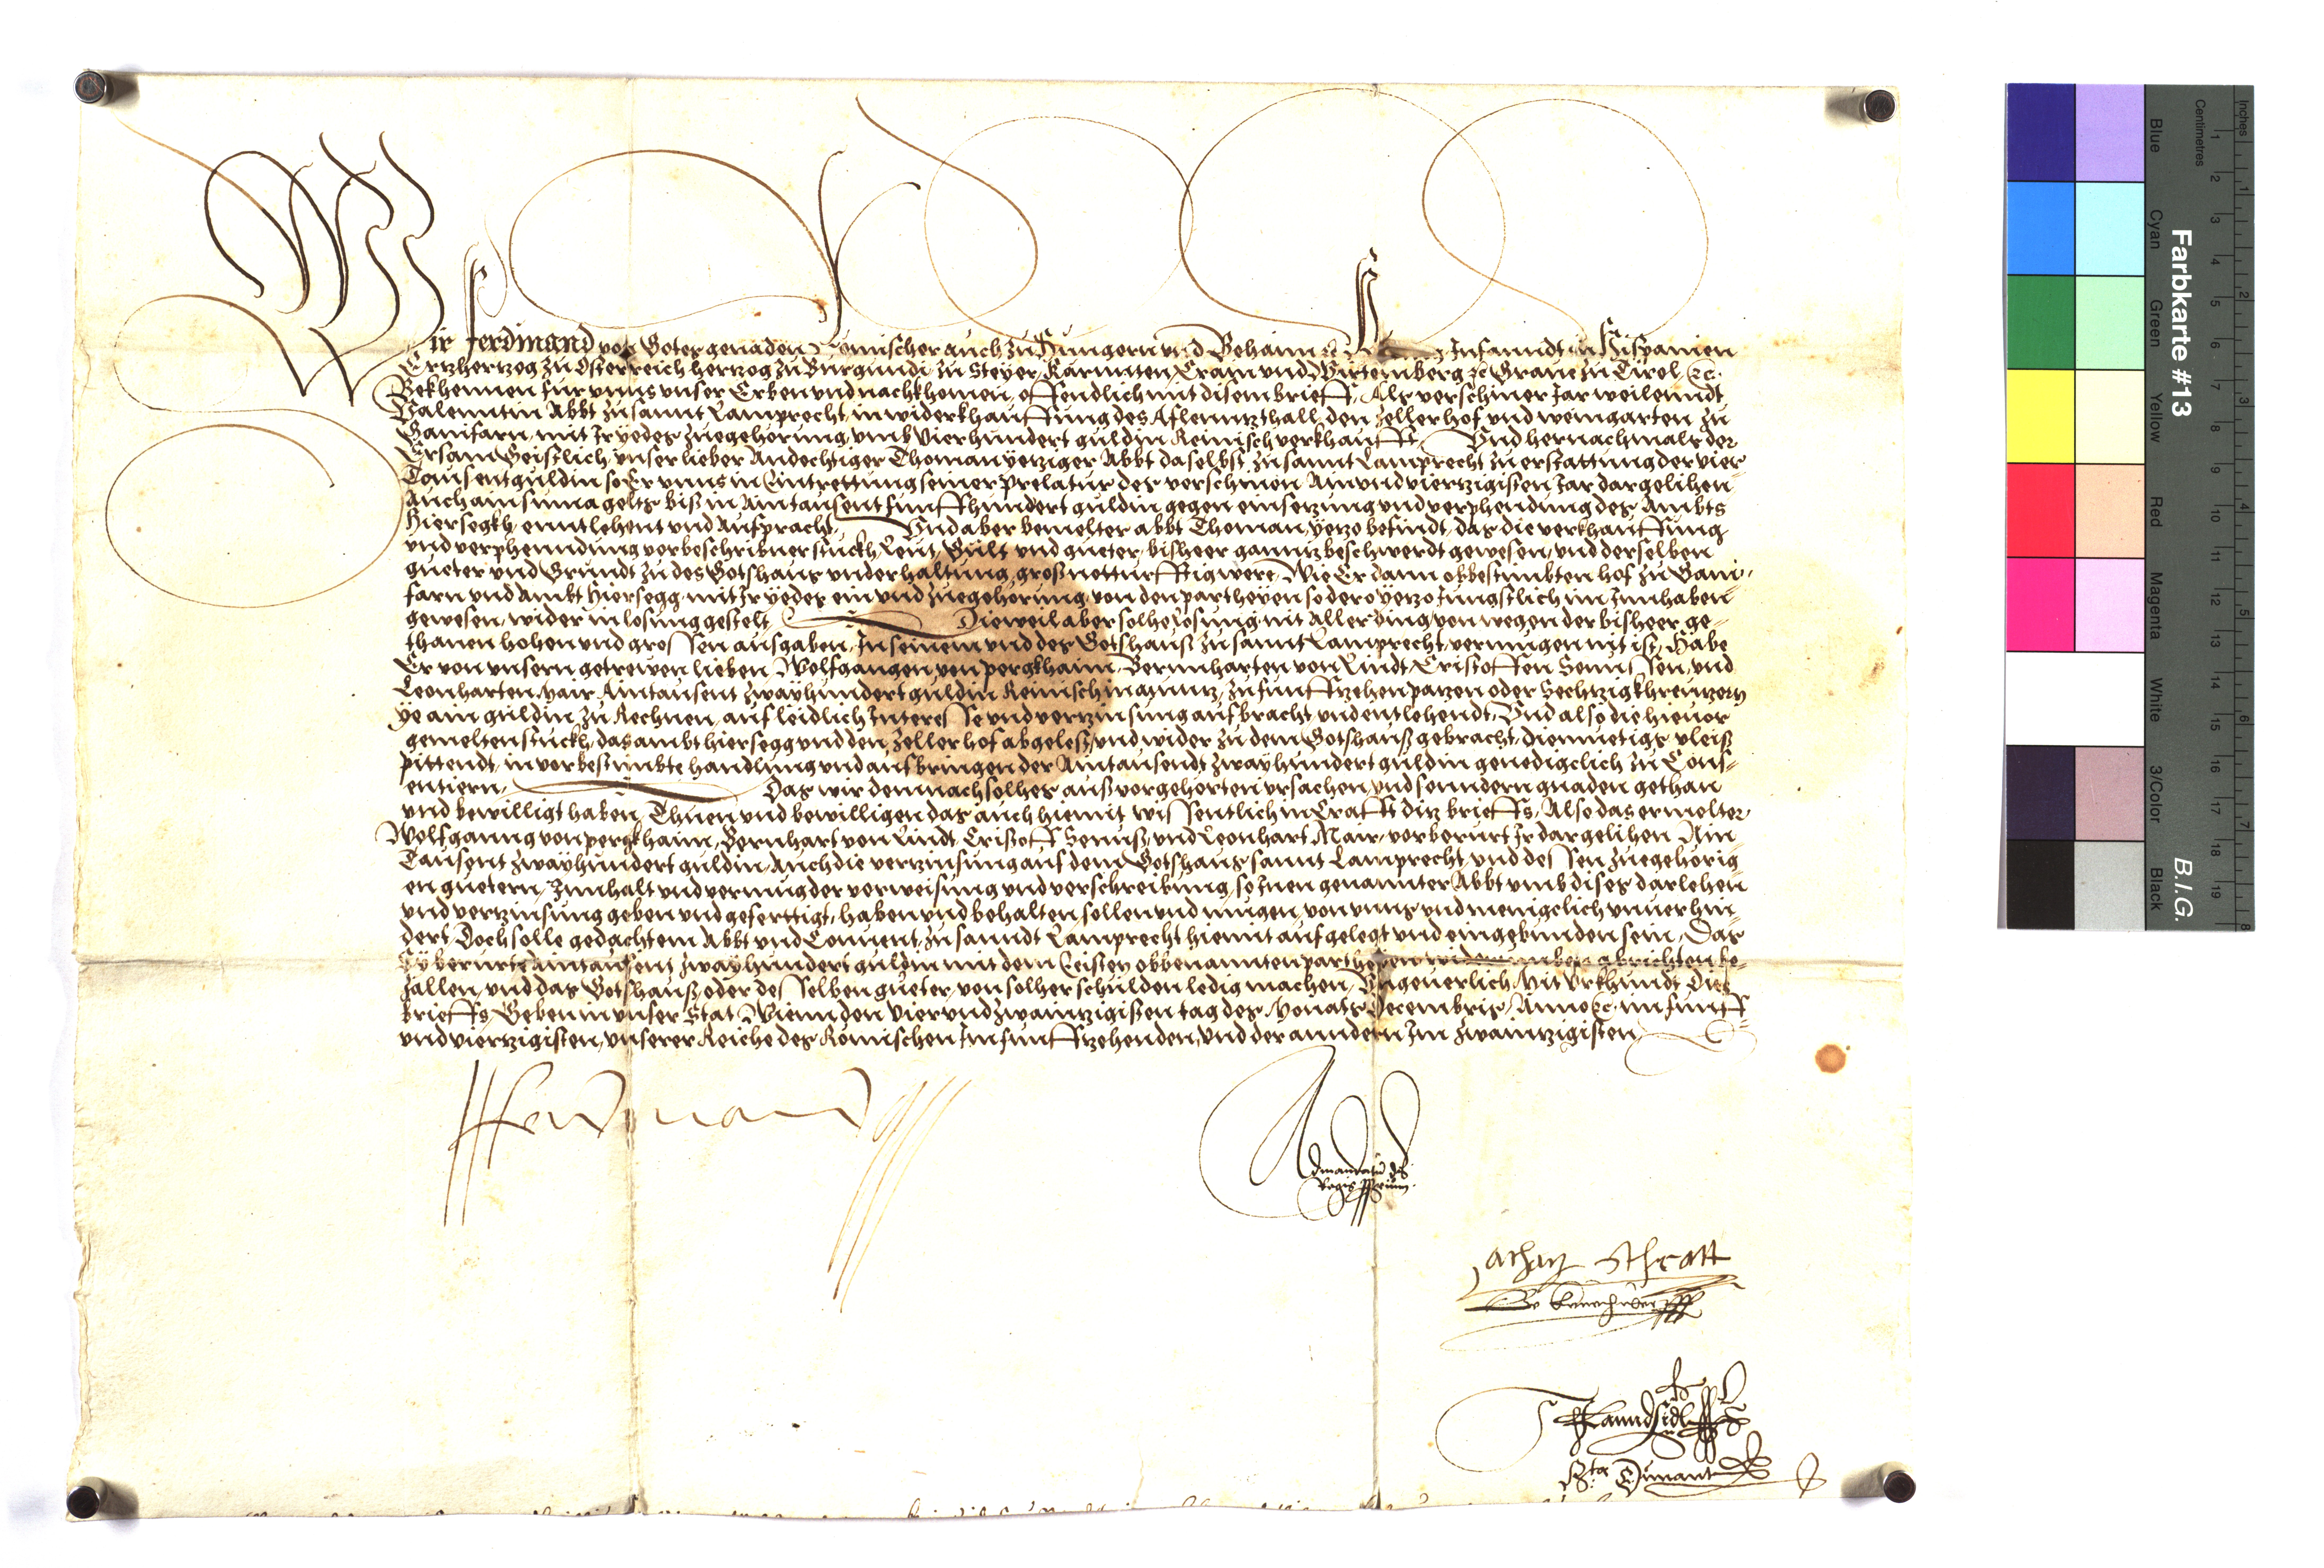 Wir Ferdinand von Gotes genaden Romischer auch zu Hungern und Behaim Infanndt in Hispanien
Ertzhertzog zu Osterreich hertzog zu Burgundi zu Steyer, Kärnnten, Crain und Wirtemberg zc Grave zu Tirol zc.
Bekhennen fur unns unser Erben und nachkhomen, offenndlich mit disem brieff, Als verschiner Jar weilenndt
Valenntin Abbt zu sannt Lamprecht, in widerkhauffung des Aflenntzthall, den zellerhof und weingarten zu
Gainfarn, mit Ir yedes zuegehorung, umb Vierhundert guldin Reinisch verkhaufft, Und hernachmals der
Ersam Geistlich, unser lieber Andechtiger Thoman yetziger Abbt daselbst, zu sannt Lamprecht zu erstattung der vier
Tausent guldin so Er unns in Eintrettung seiner Prelatur des verschinen Ainundviertzigisten Jar dargelihen
Auch ain suma gelts biß in Aintausent funffhundert guldin gegen einsetzung und verphendung des Ambts
Hiersegkh enntlehent und Aufpracht, Und aber bemelter abbt Thoman, yetzo befindt, das die verkhauffung
und verphenndung vorbeschribner stuckh, Leut, Gult und gueter, bisheer ganntz beschwerdt gewesen, und derselben
gueter und Grundt zu des Gotshaus underhaltung, groß notturfftig were, Wie Er dann obbestimbten hof zu Gain-
farn und Ambt Hiersegg, mit Ir yedes ein und zuegehorung, von den partheyen so dero yetzo Jungstlich im Innhaben
gewesen, wider in losung gestelt, Dieweil aber solhe losung mit Allerding von wegen der bisheer ge-
thanen hohen und grossen ausgaben, In seinem und des Gotshauß zu sannt Lamprecht, vermugen nit ist, Habe
Er von unsern getrewen lieben, Wolfgangen von pergkhaim, Bernnharten von Lindt, Cristoffen Senussen, und
Leonharten Mair Aintausent zwayhundert guldin Reinisch in Muntz, zu funffzehen patzen oder Sechtzig khreutzern
ye ain guldin zu Rechnen, auf leidlich Interesse und vertzinsung aufbracht und entlehendt, Und also die hievor
gemelten stuckh, das ambt hiersegg und den Zellerhof abgelest, und wider zu dem Gotshauß gebracht, diemuetigs vleiß
pittendt, in vorbestimbte handlung und aufbringen der Aintausendt zwayhundert guldin genedigclich zu Cons-
entiern, Das wir demnach solhes auß vorgehorten ursachen, und sonndern gnaden gethan
und bewilligt haben, Thuen und bewilligen das auch hiemit wissentlich in Crafft ditz brieffs, Also das ermelter
Wolfganng von pergkhaim, Bernhart von Lindt, Cristoff Senuß, und Leonhart Mair, vorberurt Ir dargelihen Ain-
Tausent zwayhundert guldin, Auch die vertzinsung auf dem Gotshaus sannt Lamprecht, und dessen zuegehorig
en guetern, Innhalt und vermug der verweisung und verschreibung, so Inen genannter Abbt umb dises darlehen
und vertzinsung geben und geferttigt, haben und behalten sollen und mugen, von unns und menigclich unverhin-
dert, Doch solle gedachtem Abbt und Convent, zu sanndt Lamprecht hiemit aufgelegt und eingebunden sein, Das
Sy berurte Aintausent zwayhundert guldin mit dem Eristen obbenannten partheyen abrichten be-
zallen, und das Gotshauß, oder desselben gueter, von solher schulden ledig machen, Ungeverlich, Mit Urkhundt dits
brieffs, Geben in unser Stat Wienn den Vierundzwaintzigisten tag des Monats Decembris, Anno zc. im funff
und viertzigisten, unserer Reiche des Römischen Im funffzehenden, und der anndern Im zwaintzigisten,
Ferdinand
Ad mandatum dni
Regis pprium
Achatz Schratt